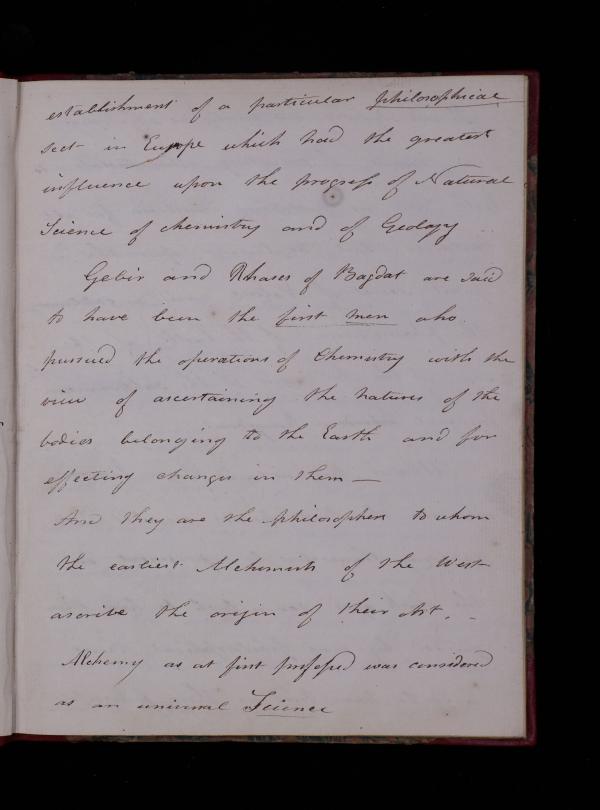 establishment of a particular philosophical
sect in Europe which had the greatest
influence upon the progress of Natural
Science of chemistry and of Geology
Gebir and Rhases of Bagdat are said
to have been the first men who
pursued the operations of Chemistry with the
view of ascertaining the natures of the
bodies belonging to the Earth and for
effecting changes in them —
And they are the philosophers to whom
the earliest Alchemists of the West
ascribe the origin of their Art. -
Alchemy as at first professed was considered
as an universal Science